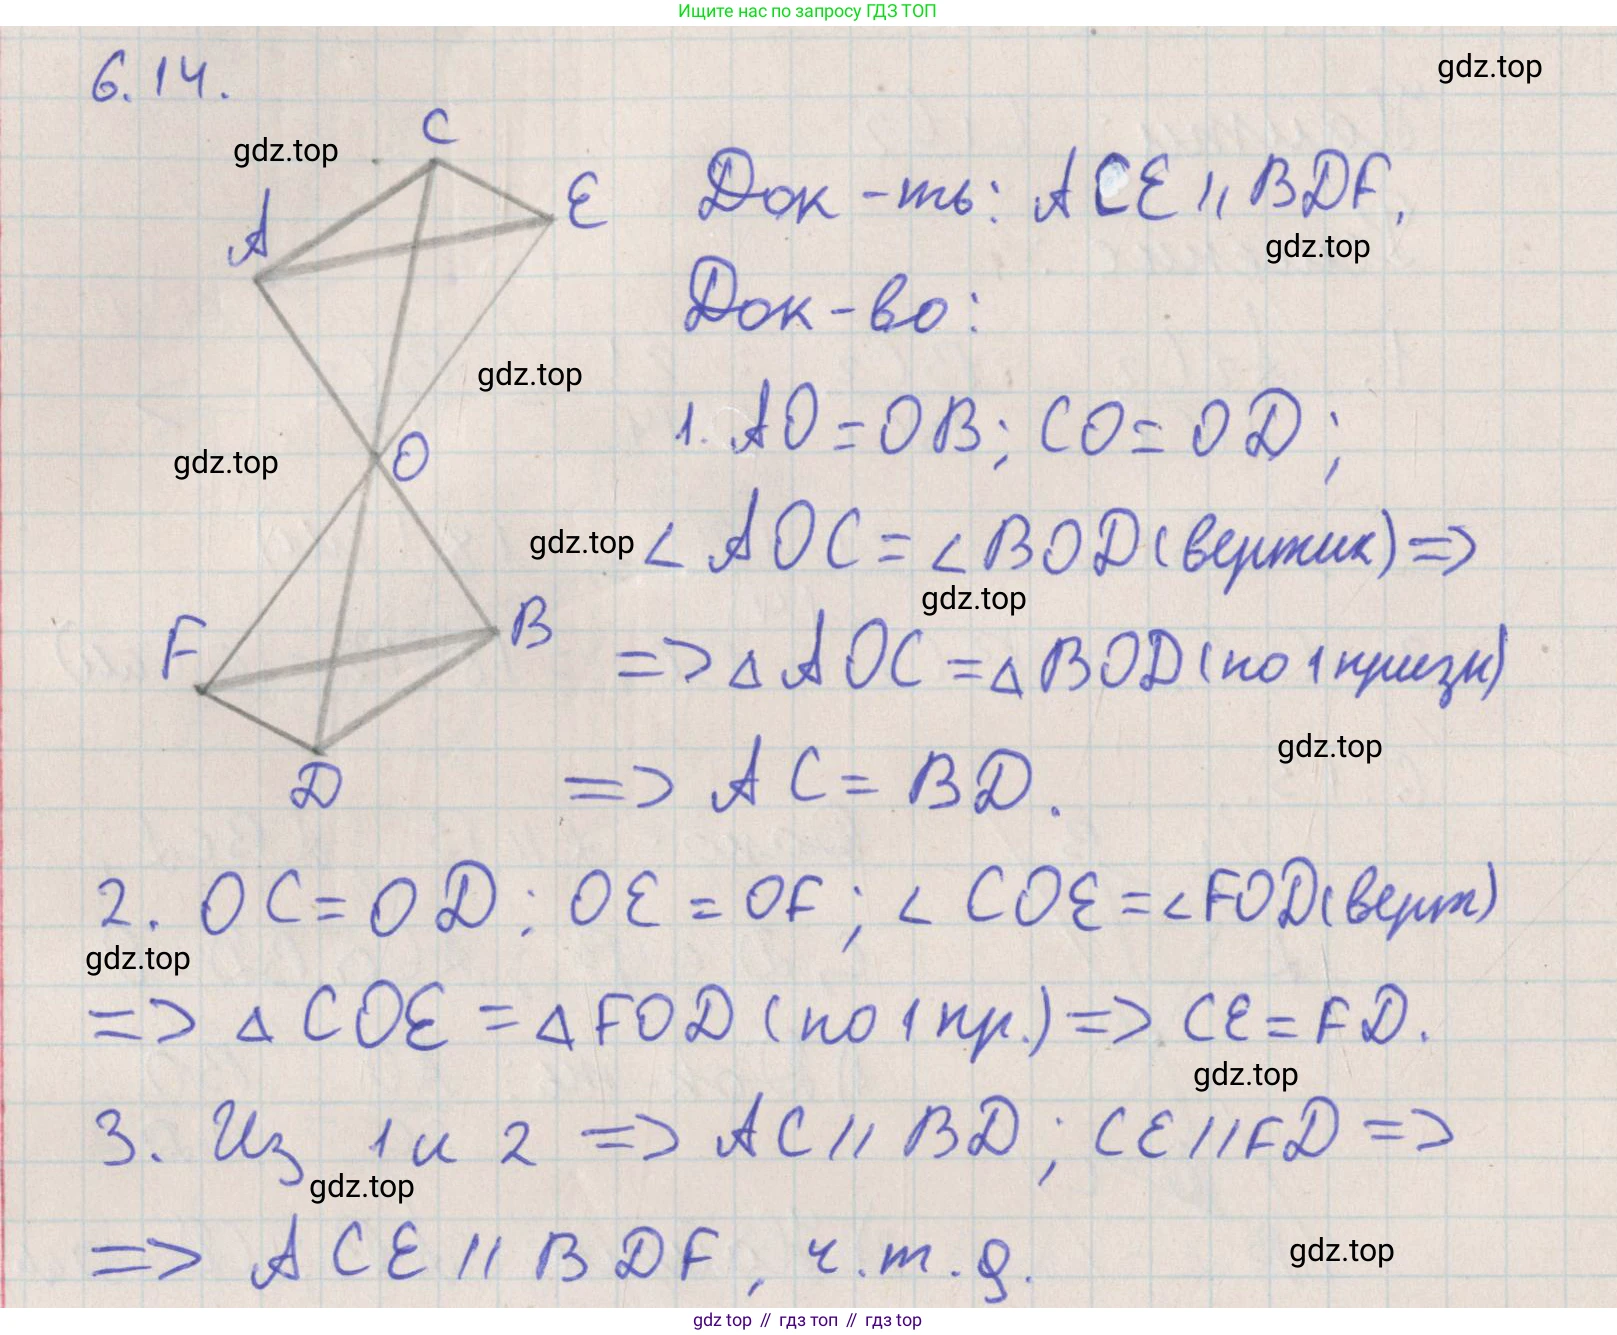 Ищите нас по запросу ГДЗ ТОП
6.14.
gdz.top
C
gdz.top
E
A
Док-ть: ACE || BDF.
gdz.top
Док-во:
gdz.top
1. AO = OB; CO = OD;
O
gdz.top
gdz.top
∠ AOC = ∠ BOD (вертик) =>
gdz.top
F
B
=> △ AOC = △ BOD (по 1 призн)
gdz.top
D
=> AC = BD.
2. OC = OD; OE = OF; ∠ COE = ∠ FOD (верт)
gdz.top
=> △ COE = △ FOD (по 1 пр.) => CE = FD.
gdz.top
3. Из 1 и 2 => AC || BD; CE || FD =>
gdz.top
=> ACE || BDF, ч.т.д.
gdz.top
gdz top // гдз топ // гдз top